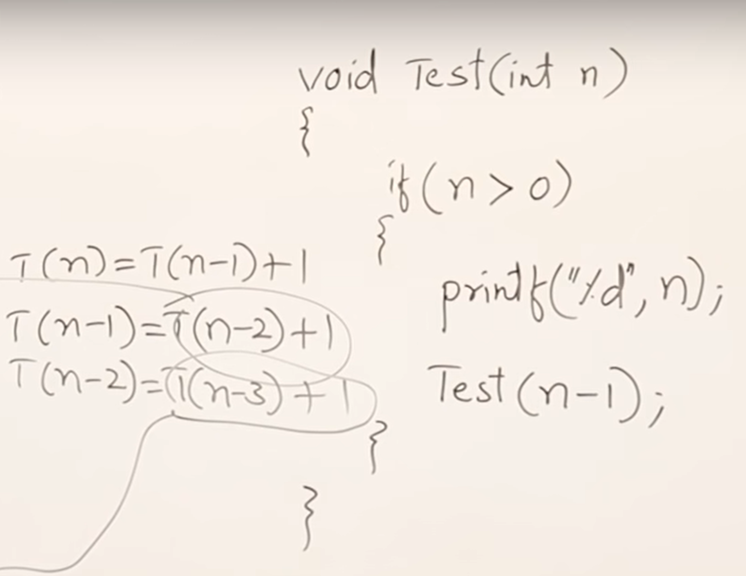 void Test(int n)
{
if(n>0)
{
printf("%d", n);
Test(n-1);
}
}
T(n)=T(n-1)+1
T(n-1)=T(n-2)+1
T(n-2)=T(n-3)+1